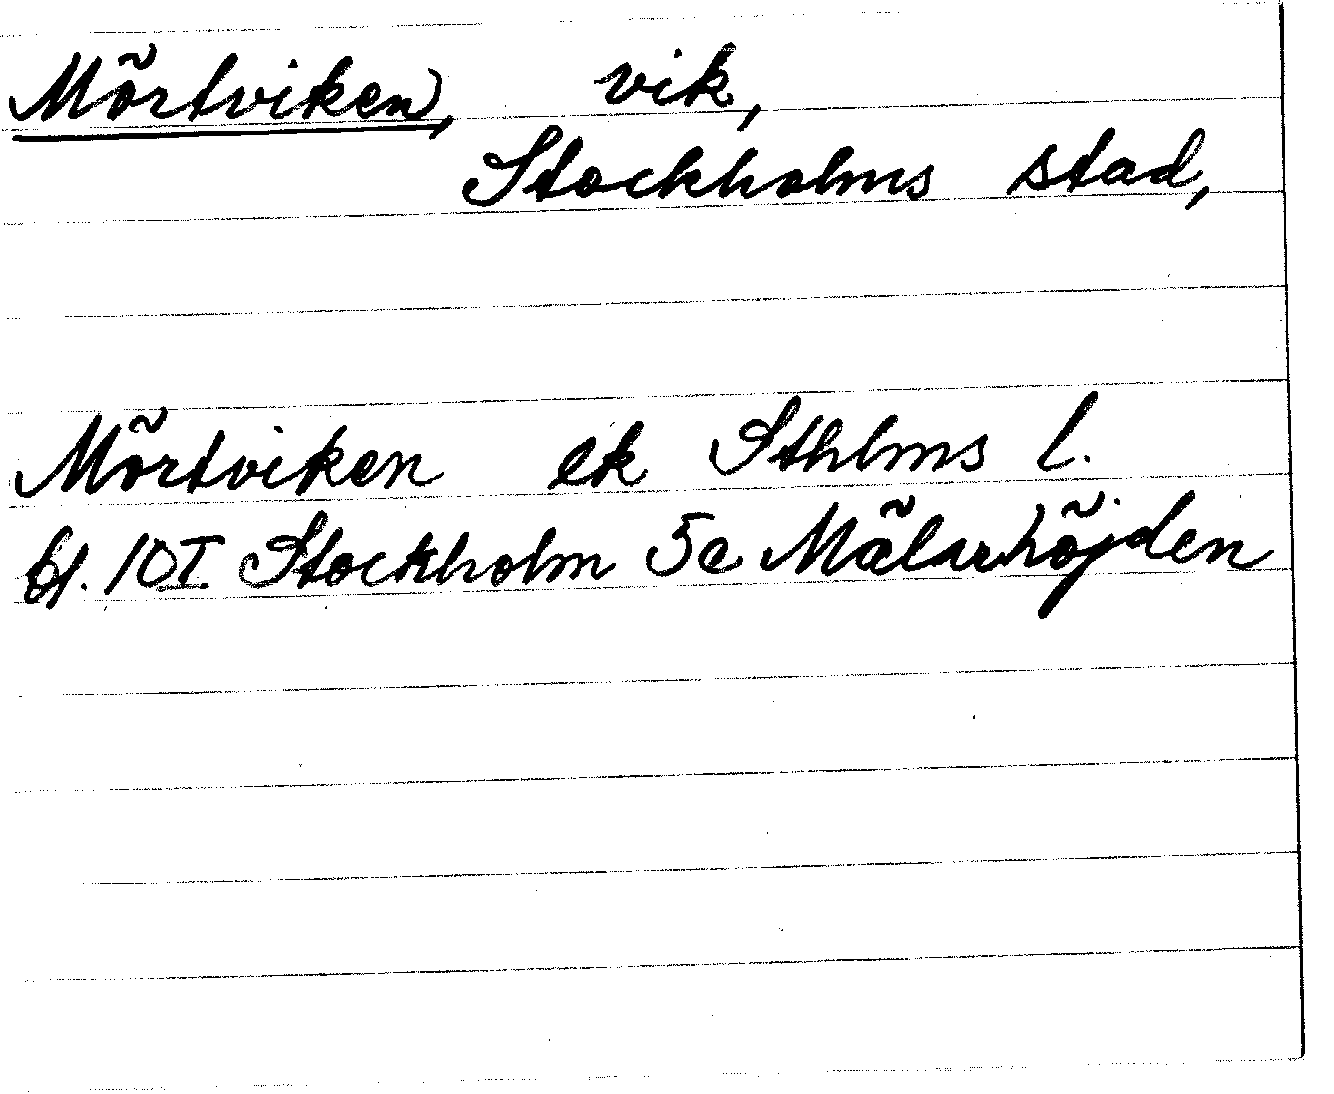 Mörtviken, vik,
Stockholms stad,
Mörtviken ek Sthlms l.
bl. 10I Stockholm 5e Mälarhöjden